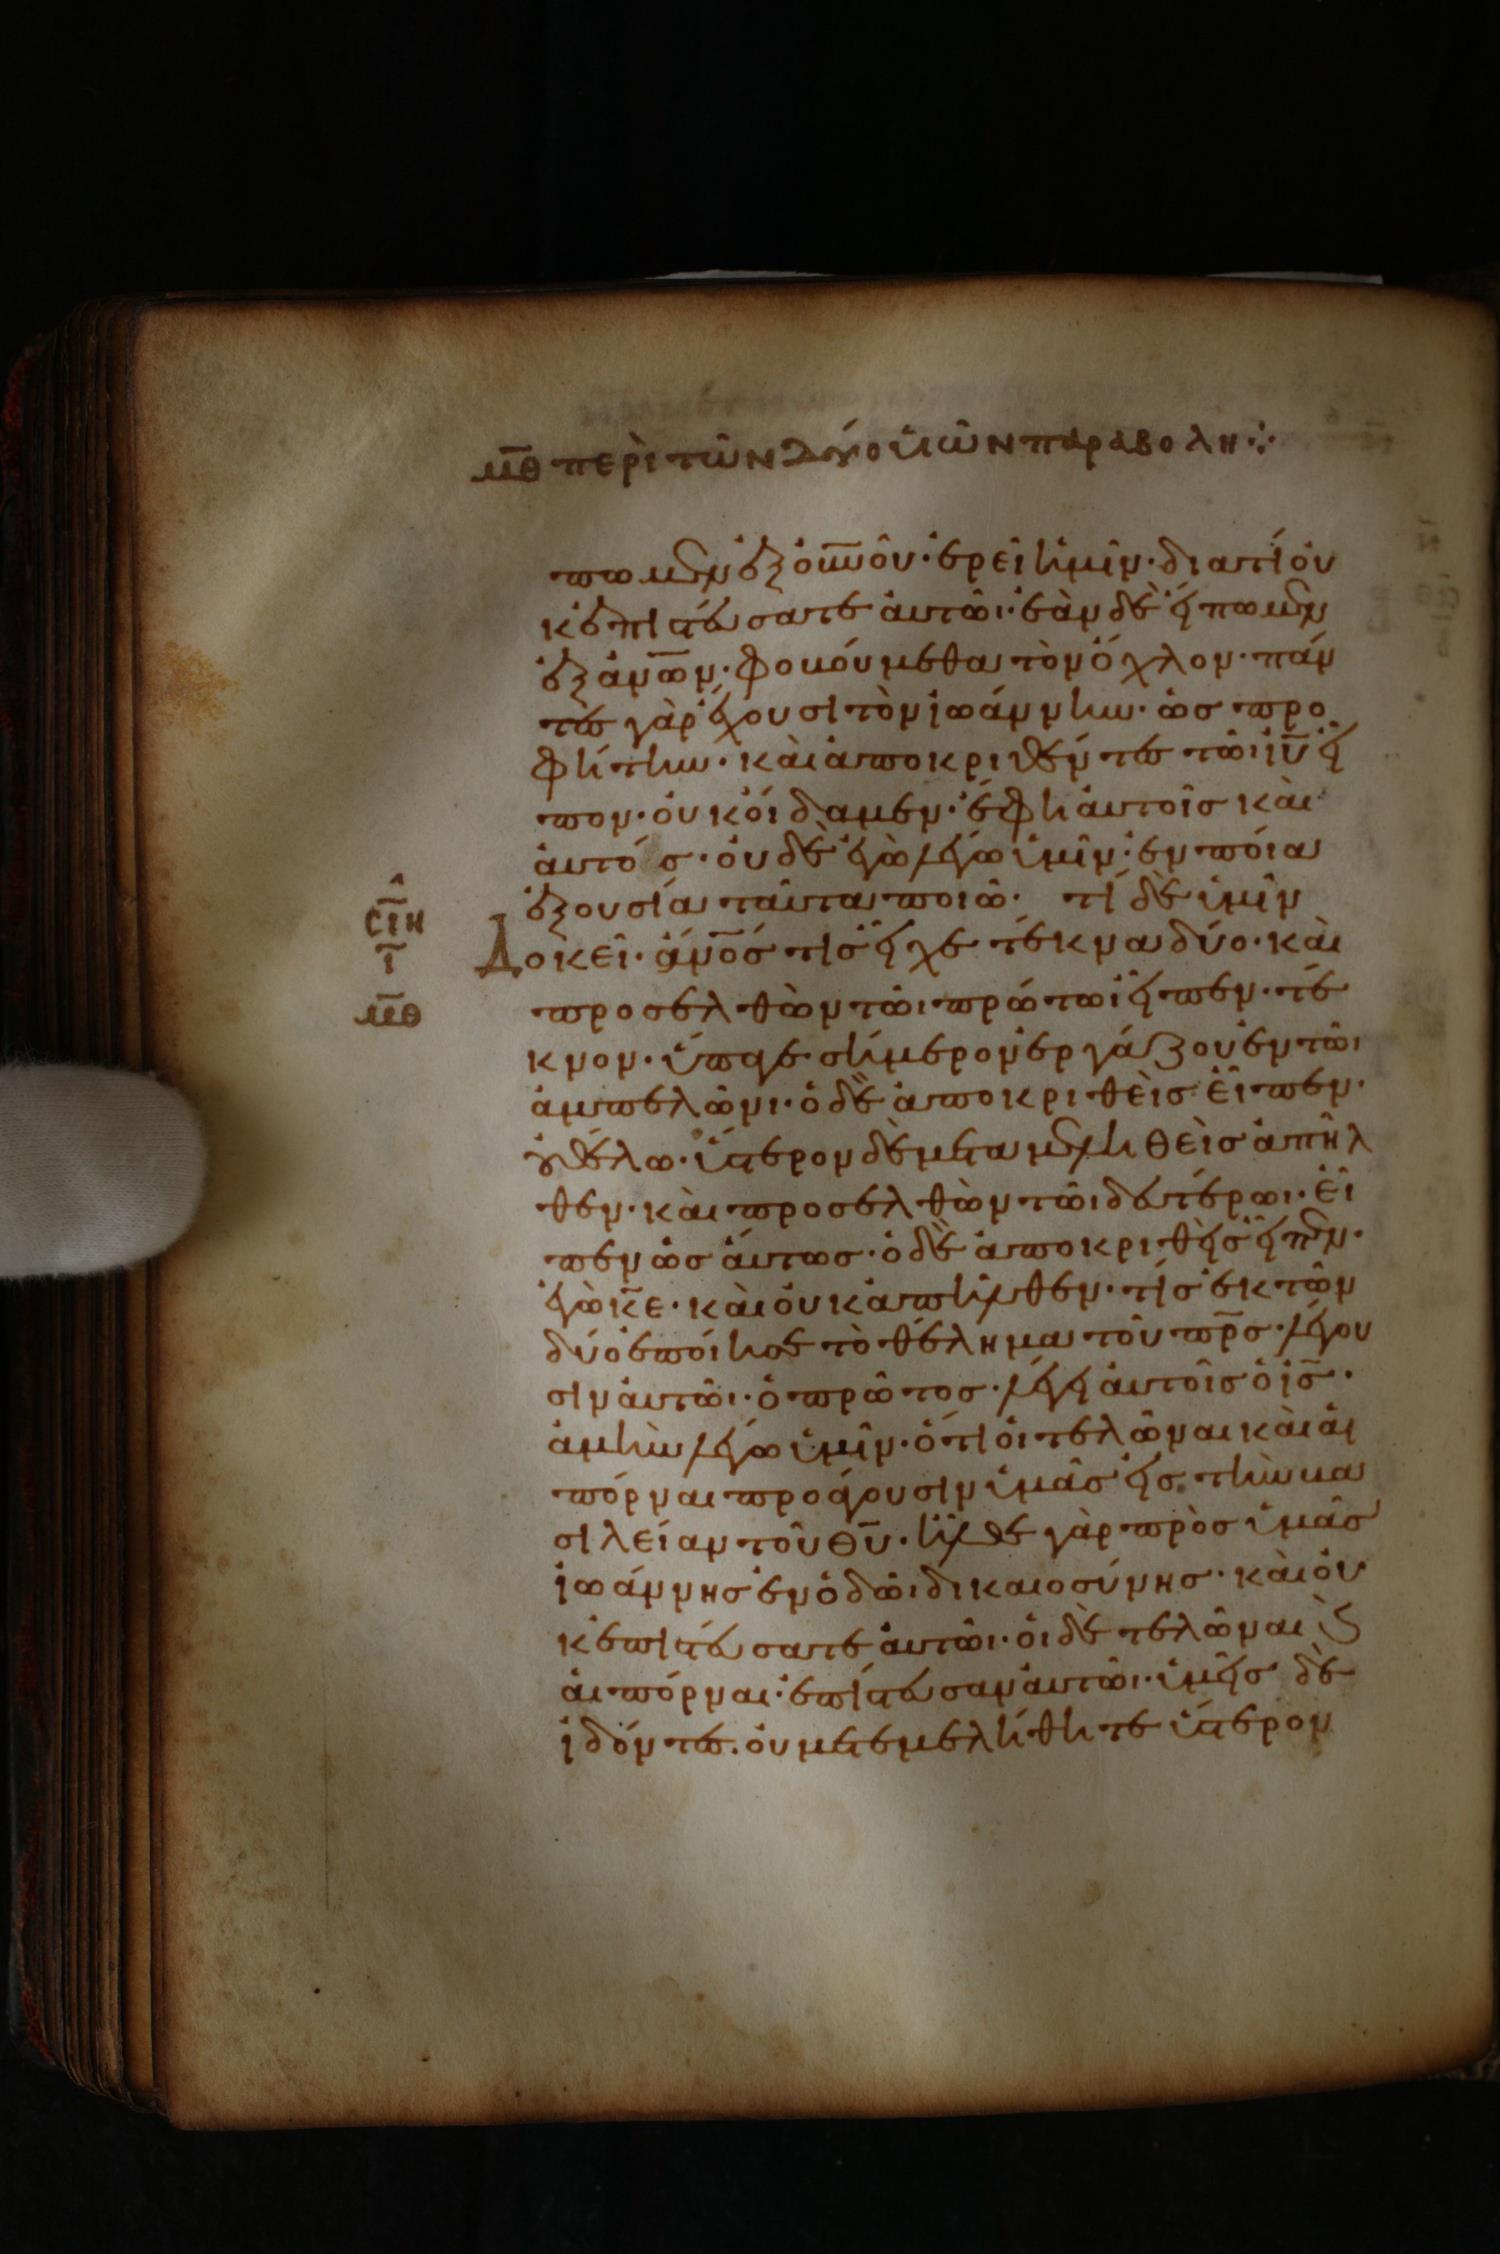 μ̅θ περὶ τῶν δύο ὑιῶν παραβολη ⁘
πωμεν ἐξ ο̅υ̅ν̅οῦ· ἐρεῖ ἡμῖν· διατί ὀυ
κ ἐπιστεύσατε ἀυτῶι· ἐὰν δὲ ἔιπωμεν
ἐξ ἀν̅ω̅ν· φοβούμεθα τὸν ὄχλον· πάν
τες γὰρ ἔχουσι τὸν ἰωάννην· ὡσ προ
φήτην· καὶ ἀποκριθέντες τῶι ι̅υ̅ ἐι
πον· ὀυκ ὀίδαμεν· ἔφη ἀυτοῖσ καὶ
ἀυτό σ· ὀυδὲ ἐγὼ λέγω ὑμῖν· ἐν ποία
ἐξουσία ταῦτα ποιῶ· τί δὲ ὑμῖν
Δοκεῖ· ἄν̅ο̅σ τισ ἔιχε τέκνα δύο· καὶ
προσελθὼν τῶι πρώτωι εἶπεν· τέ
κνον· ὕπαγε σήμερον ἐργάζου ἐν τῶι
ἀμπελῶνι· ὁ δὲ ἀποκριθεὶσ εἶπεν·
ὀυ θέλω· ὕστερον δὲ μεταμεληθεὶσ ἀπῆλ
θεν· καὶ προσελθὼν τῶι δευτέρωι· εἶ
πεν ὡσάυτωσ· ὁ δὲ ἀποκριθεὶσ εἶπεν·
ἐγὼ κ̅ε· καὶ ὀυκ ἀπῆλθεν· τίσ ἐκ τῶν
δύο ἐποίησε τὸ θέλημα τοῦ π̅ρ̅σ· λέγου
σιν ἀυτῶι· ὁ πρῶτοσ· λέγει ἀυτοῖσ ὁ ι̅σ̅·
ἀμὴν λέγω ὑμῖν· ὅτι ὁι τελῶναι καὶ ἁι
πόρναι προάγουσιν ὑμᾶσ ἐισ τὴν βα
σιλείαν τοῦ θ̅υ̅· ἦλθε γὰρ πρὸσ ὑμᾶσ
ἰωάννησ ἐν ὁδῶι δικαιοσύνησ· καὶ ὀυ
κ ἐπιστεύσατε ἀυτῶι· ὁι δὲ τελῶναι ϗ
ἁι πόρναι· ἐπίστευσαν ἀυτῶι· ὑμεῖσ δὲ
ἰδόντες. ὀυ μετεμελήθητε ὕστερον
σ̅ι̅η
ι̅
μ̅θ